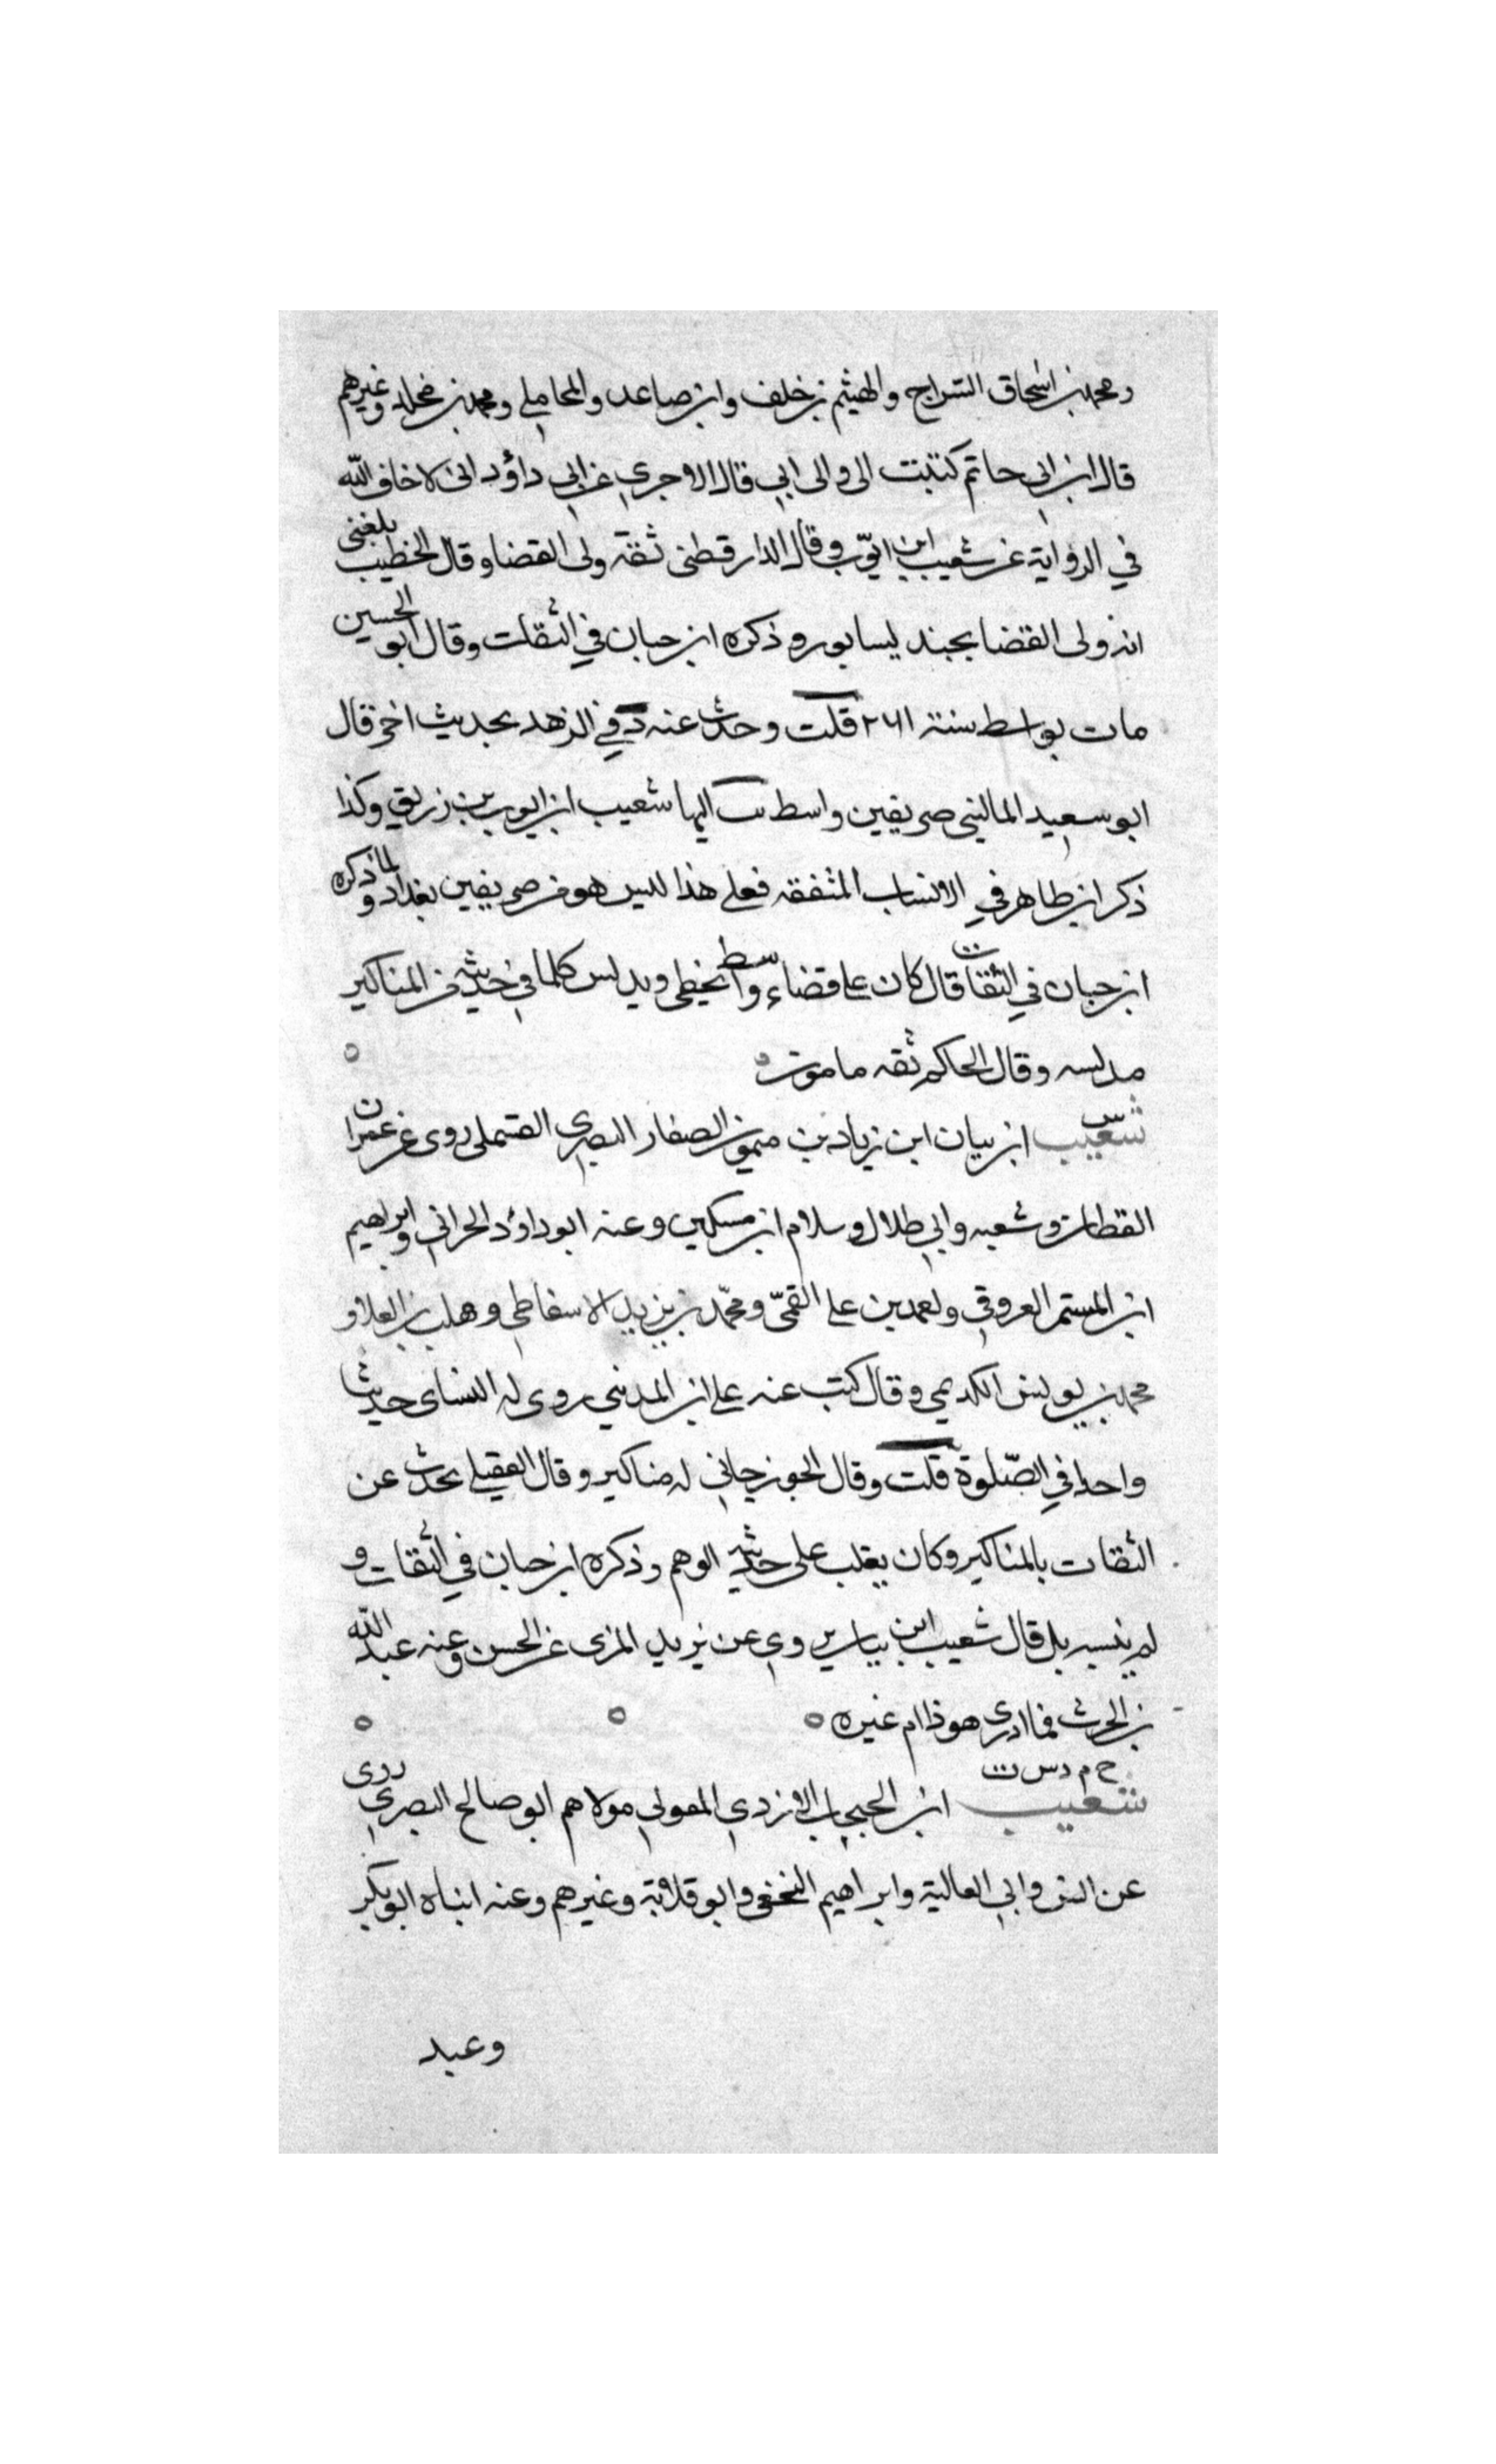 ومحمد بن اسحاق السراج والهيثم بن خلف وابن صاعد والمحاملي ومحمد بن مخلد وغيرهم
قال ابن ابي حاتم كتبت الى والى ابي قال الاجري عن ابي داؤد انى لاخاف الله
في الرواية عن شعيب ابن ايوّب وقال الدارقطنى ثقة ولى القضا وقال الخطيب بلغنى
انه ولى القضا بجند يسابور وذكره ابن حبان في الثقات وقال ابو الحسين
مات بواسط سنة ٢٤١ قلت وحدث عنه د في الزهد بحديث اخر قال
ابو سعيد الماليني صريفين واسط ليها شعيب ابن ايوب بن زريق وكذا
ذكر ابن طاهر في الانساب المتفقه فعلى هذا ليس هو من صريفين بغداد ولما ذكره
ابن حبان في الثقات قال كان على قضاء واسط يخطى ويدلس كلما في حديثه من المناكير
مدلسه وقال الحاكم ثقه مامون
س
شعيب ابن بيان ابن زياد بن ميمون الصفار البصري القسملى روى عن عمران
القطان وشعبه وابي طلال وسلام ابن مسكين وعنه ابو داؤد الحراني وابراهيم
ابن المستمر العروقي ولعمد بن على القمّي ومحمّد بن يزيد الاسفاطى وهلب بن العلا و
محمد بن يونس الكديمي وقال كتب عنه على ابن المديني روى له النساى حديثا
واحدا في الصّلوة قلت وقال الجوزجاني له مناكير وقال العقيلي يحدث عن
الثقات بالمناكير وكان يغلب على حديثه الوهم وذكره ابن حبان في الثقات و
لم ينسبه بل قال شعيب ابن بيا يروي عن يزيد المزى عن الحسن وعنه عبد الله
بن الحرث فما ادرى هو ذا ام غيره
خ م د س ت
شعيب ابن الحبحاب الازدي المعولي مولاهم ابو صالح البصري روى
عن انس وابي العالية وابراهيم النخعى وابو قلابة وغيرهم وعنه ابناه ابو بكر
وعبد